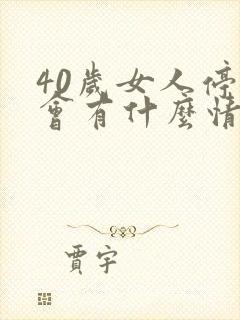 40歲女人停
會有什麼情
賈宇